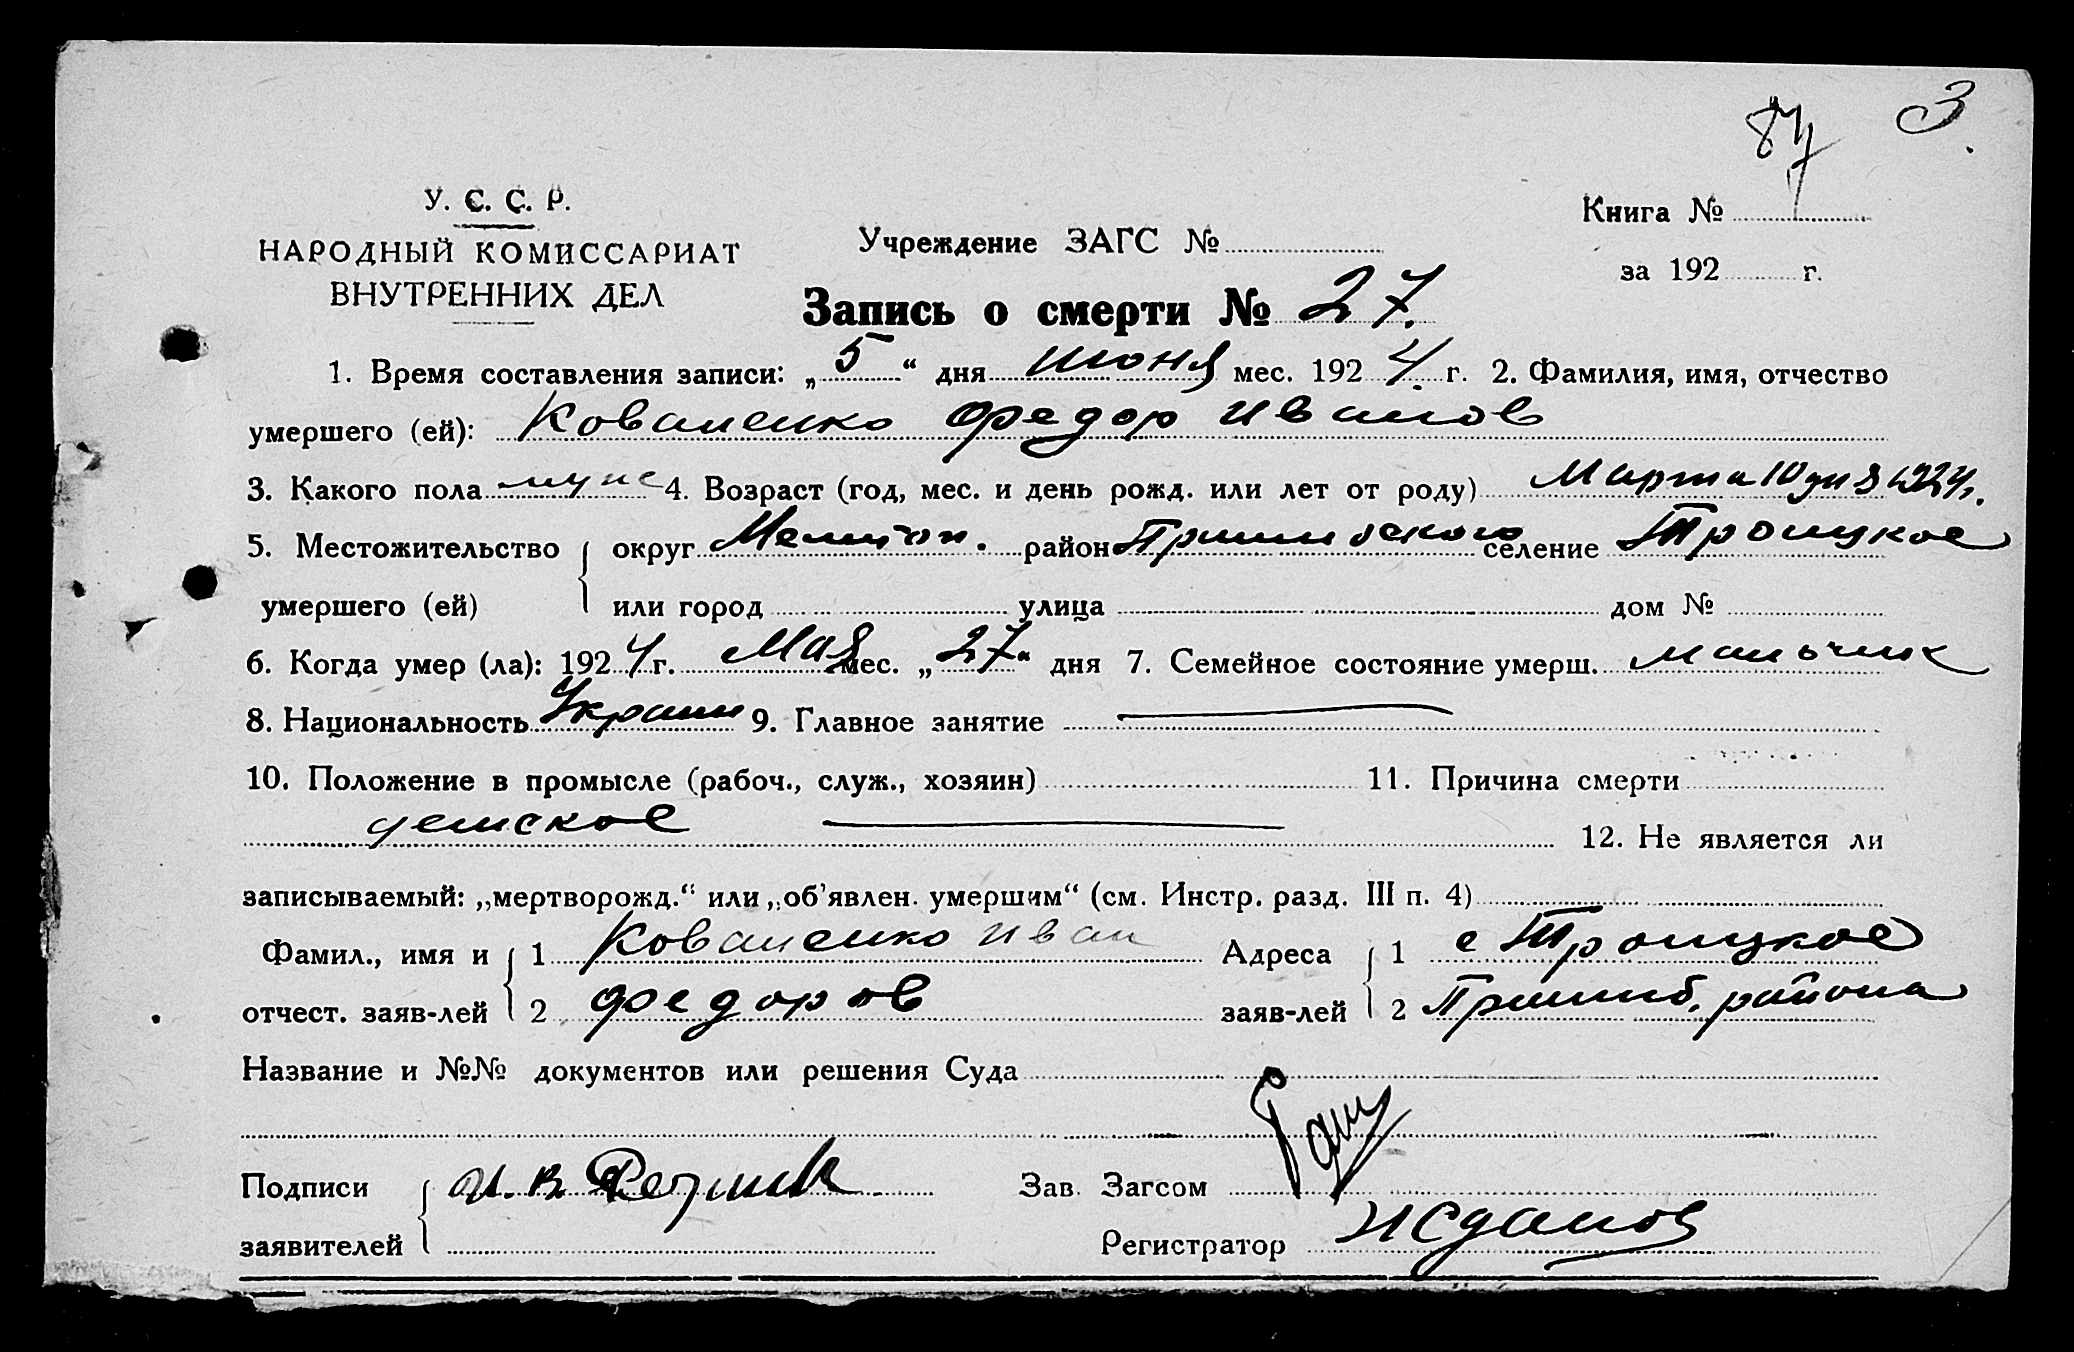 3.
87
У. С. С. Р.
НАРОДНЫЙ КОМИССАРИАТ
ВНУТРЕННИХ ДЕЛ
Учреждение ЗАГС №
Книга №
за 192 г.
Запись о смерти № 27.
1. Время составления записи: „5“ дня июня мес. 1924 г. 2. Фамилия, имя, отчество
умершего (ей): Коваленко Федор Иванов
3. Какого пола муж 4. Возраст (год, мес. и день рожд. или лет от роду) Марта 10 дня 1924г.
5. Местожительство округ Мелитоп. район Пришибского селение Троицкое
умершего (ей) или город улица дом №
6. Когда умер (ла): 1924 г. Мая мес. „27“ дня 7. Семейное состояние умерш. мальчик
8. Национальность Украин 9. Главное занятие
10. Положение в промысле (рабоч., служ., хозяин) 11. Причина смерти
детское 12. Не является ли
записываемый: „мертворожд.“ или „об'явлен. умершим“ (см. Инстр. разд. III п. 4)
Фамил., имя и 1 Коваленко Иван Адреса 1 с Троицкое
отчест. заяв-лей 2 Федоров заяв-лей 2 Пришиб. района
Название и №№ документов или решения Суда
Подписи И. В. Зав. Загсом
заявителей Регистратор